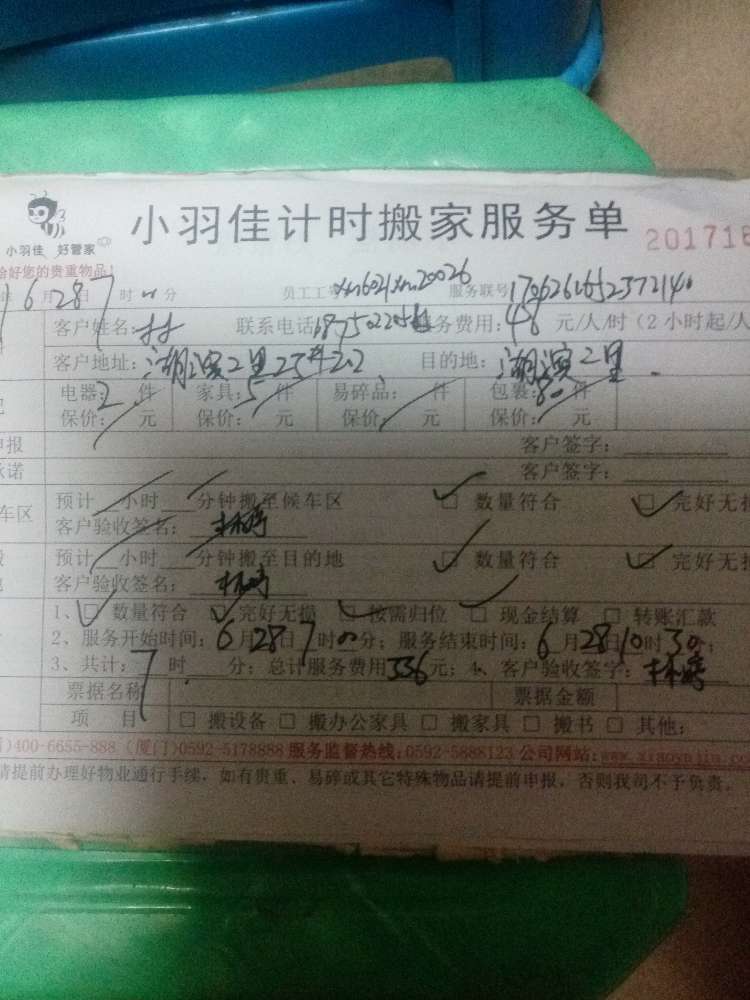 小羽佳计时搬家服务单
小羽佳 好管家
201716
给好您的贵重物品!
6月28日7时00分 员工工号 xm6021xm20026 服务联号
客户姓名:林 联系电话 服务费用:48元/人/时(2小时起/人
客户地址:湖滨二里 目的地:湖滨二里
电器:2件 家具:5件 易碎品: 件 包装:80件
保价: 元 保价: 元 保价: 元 保价: 元
申报 客户签字:
承诺 客户签字:
车区 预计 小时 分钟搬至候车区 ☑ 数量符合 ☑ 完好无损
客户验收签名:林婷
预计 小时 分钟搬至目的地 ☑ 数量符合 ☑ 完好无损
客户验收签名:林婷
1、☑ 数量符合 ☑ 完好无损 ☑ 按需归位 ☑ 现金结算 □ 转账汇款
2、服务开始时间:6月28日7时00分;服务结束时间:6月28日10时30分;
3、共计:7时 分;总计服务费用336元;4、客户验收签字:林婷
票据名称 票据金额
项 目 □ 搬设备 □ 搬办公家具 □ 搬家具 □ 搬书 □ 其他:
)400-6655-888 (厦门)0592-5178888 服务监督热线:0592-5888123 公司网站:www.xiaoyujia.com
请提前办理好物业通行手续,如有贵重、易碎或其它特殊物品请提前申报,否则我司不予负责。